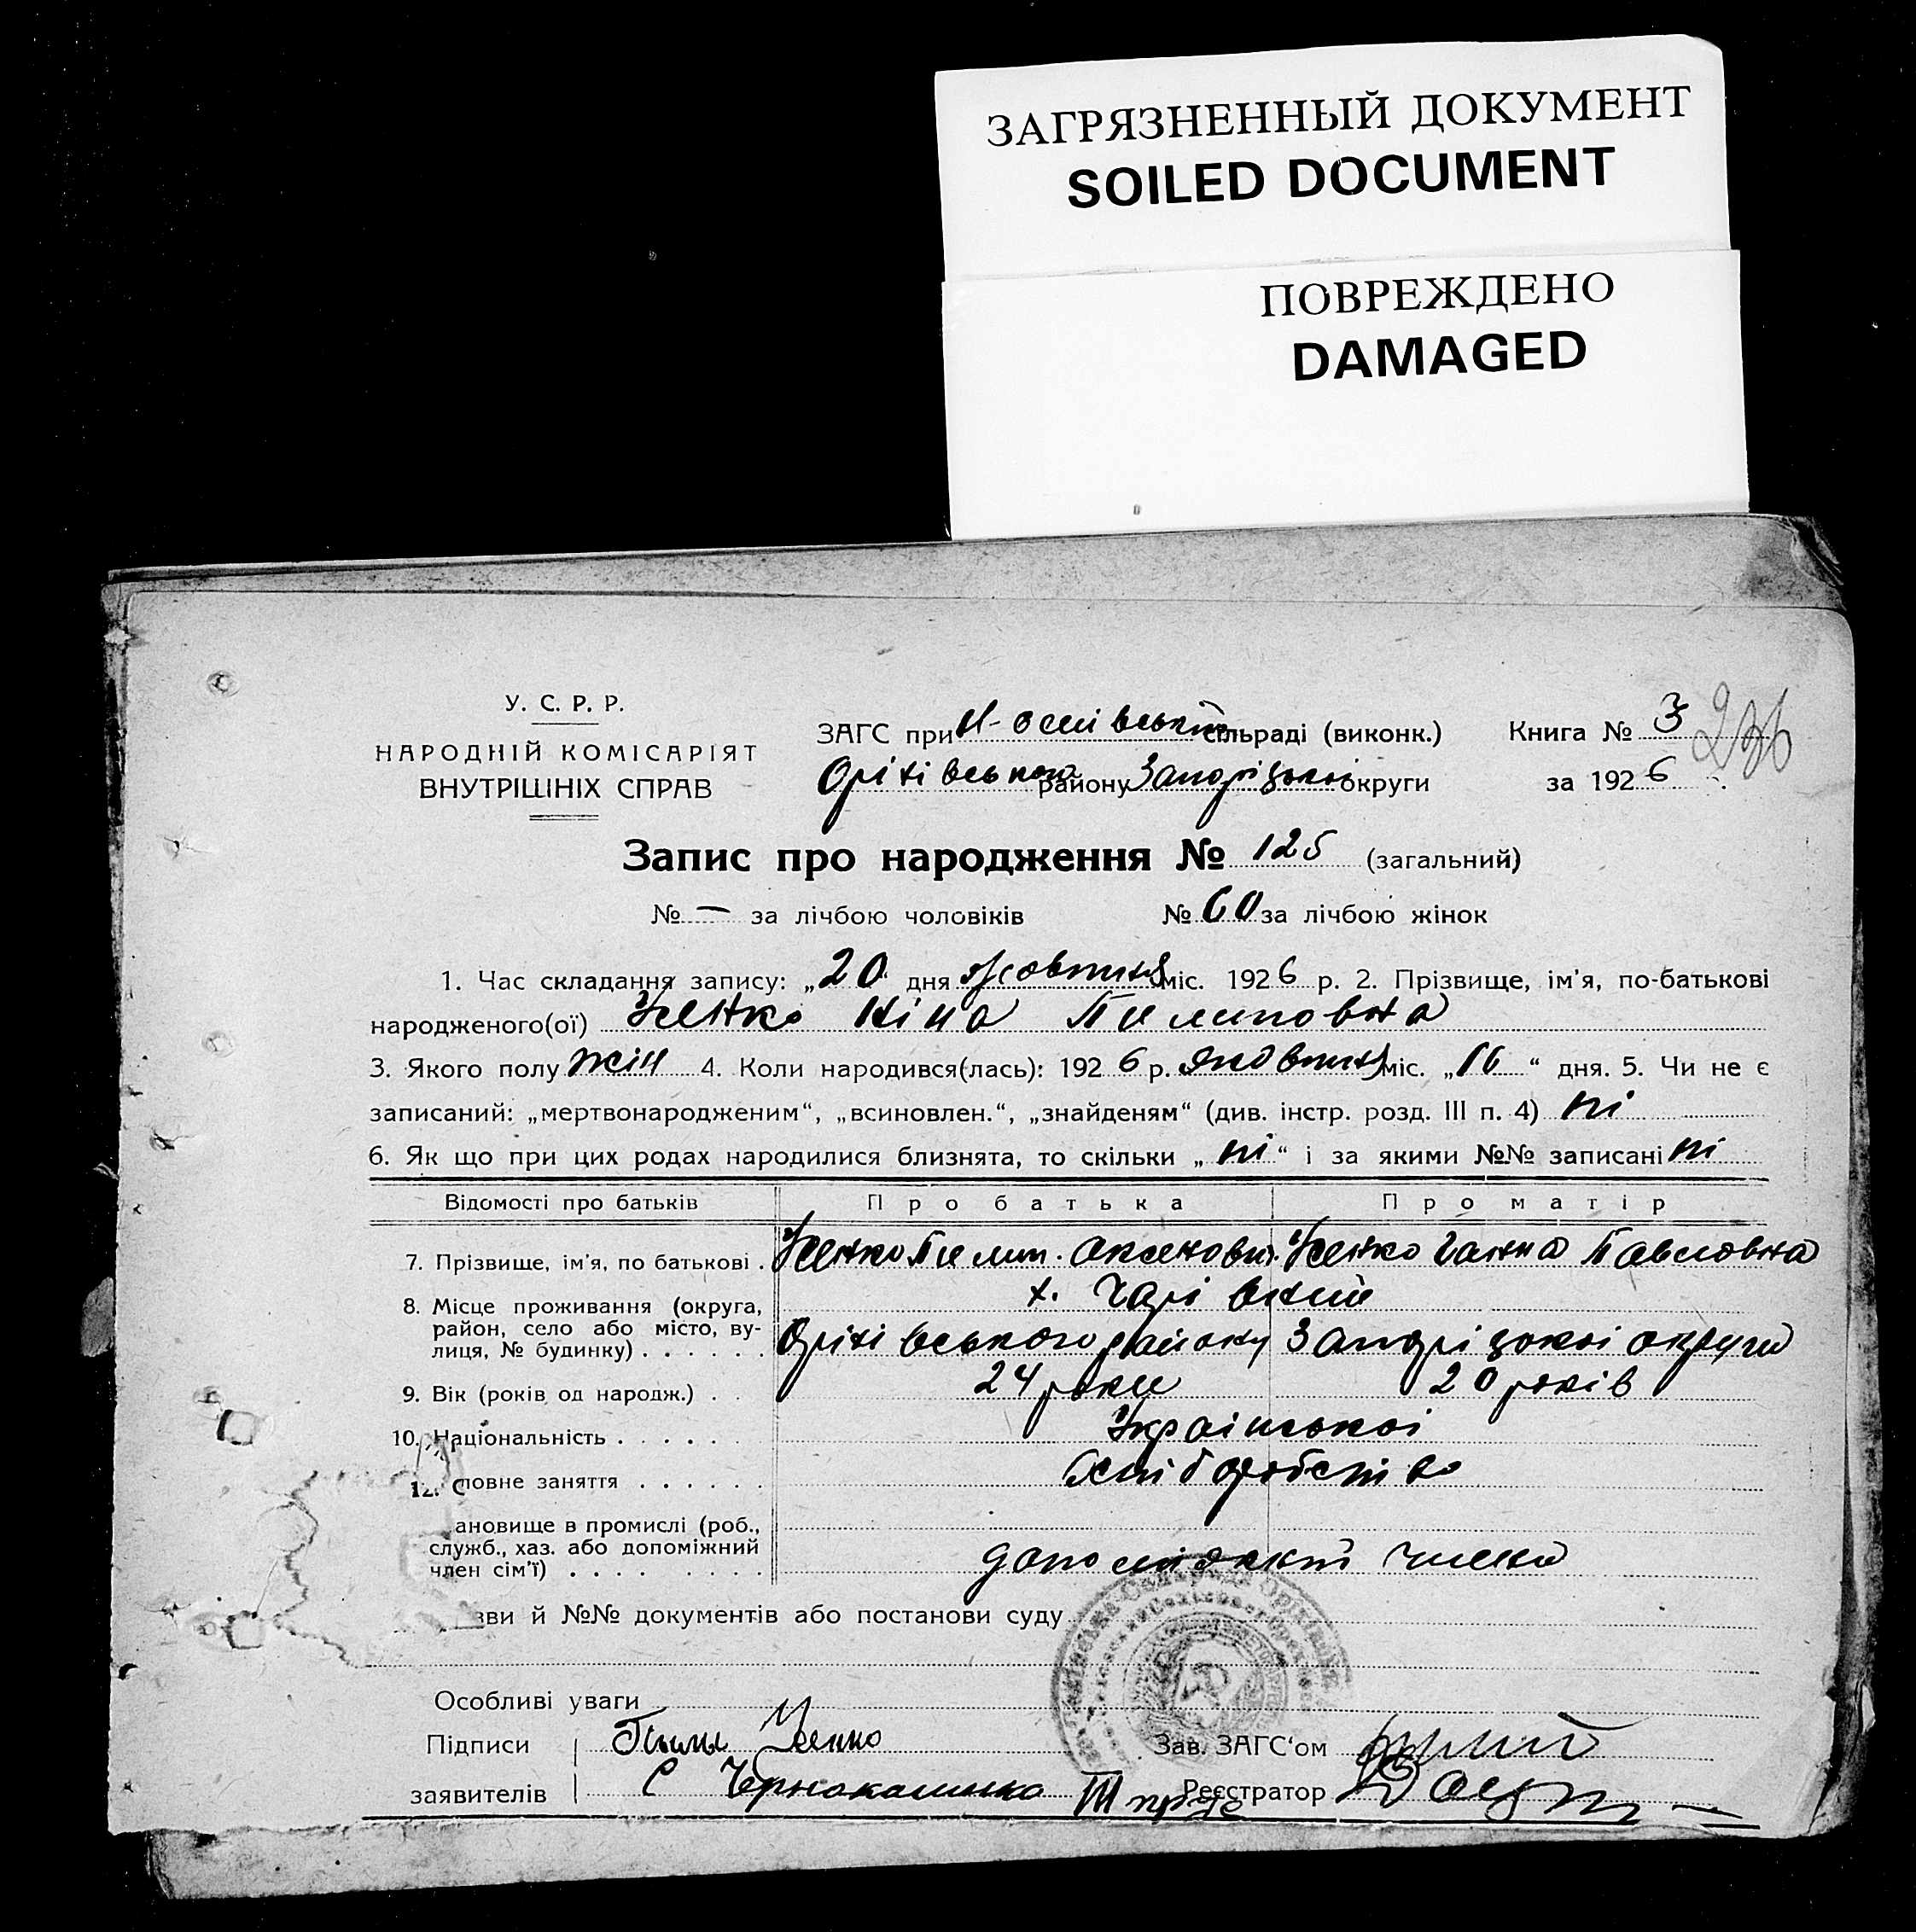 ЗАГРЯЗНЕННЫЙ ДОКУМЕНТ
SOILED DOCUMENT
ПОВРЕЖДЕНО
DAMAGED
У. С. Р. Р.
НАРОДНІЙ КОМІСАРІЯТ
ВНУТРІШНІХ СПРАВ
ЗАГС при сільраді (виконк.)
Оріхівського району Запоріцької округи
Книга № 3
236
за 1926
Запис про народження № 125 (загальний)
№ — за лічбою чоловіків № 60 за лічбою жінок
1. Час складання запису: „20 дня жовтня міс. 1926 р. 2. Прізвище, ім'я, по-батькові
народженого(ої) Усенко Ніна Пилиповна
3. Якого полу жін 4. Коли народився(лась): 1926 р. жовтня міс. „16“ дня. 5. Чи не є
записаний: „мертвонародженим“, „всиновлен.“, „знайденям“ (див. інстр. розд. III п. 4) ні
6. Як що при цих родах народилися близнята, то скільки „ні“ і за якими №№ записані ні
Відомості про батьків Про батька Про матір
7. Прізвище, ім'я, по батькові . Усенко Пилип. Усенко Ганна Павловна
8. Місце проживання (округа, район, село або місто, вулиця, № будинку) . . . . . . х. Чарівний
Оріхівського району Запоріцької округи
9. Вік (років од народж.) . . 24 роки 20 років
10. Національність . . . . . . Української
12. С повне заняття . . . . . . Хліборобство
ановище в промислі (роб.,
служб., хаз. або допоміжний
член сім'ї) . . . . . . . . .
зви й №№ документів або постанови суду
Особливі уваги
Підписи Усенко Зав. ЗАГС'ом
заявителів С Реєстратор